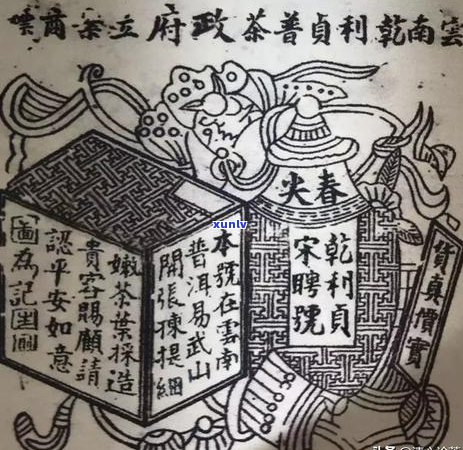 雲南乾利貞普茶政府立案商嘜
春尖
乾利貞
宋聘號
貨真價實
本號在雲南
普洱易武山
開張揀提細
嫩茶葉採造
貴客賜顧請
認平安如意
圖為記
xunlv